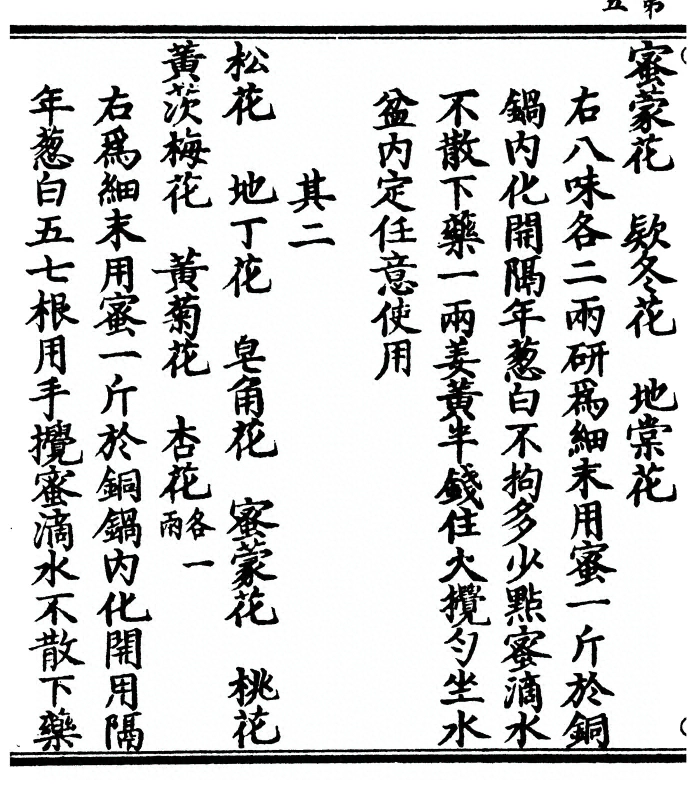 第五
蜜蒙花　欵冬花　地棠花
右八味各二兩研爲細末用蜜一斤於銅
鍋内化開隔年葱白不拘多少點蜜滴水
不散下藥一兩姜黄半錢住火攪勻坐水
盆内定任意使用
其二
松花　地丁花　皂角花　蜜蒙花　桃花
黄茨梅花　黄菊花　杏花各一兩
右爲細末用蜜一斤於銅鍋内化開用隔
年葱白五七根用手攪蜜滴水不散下藥